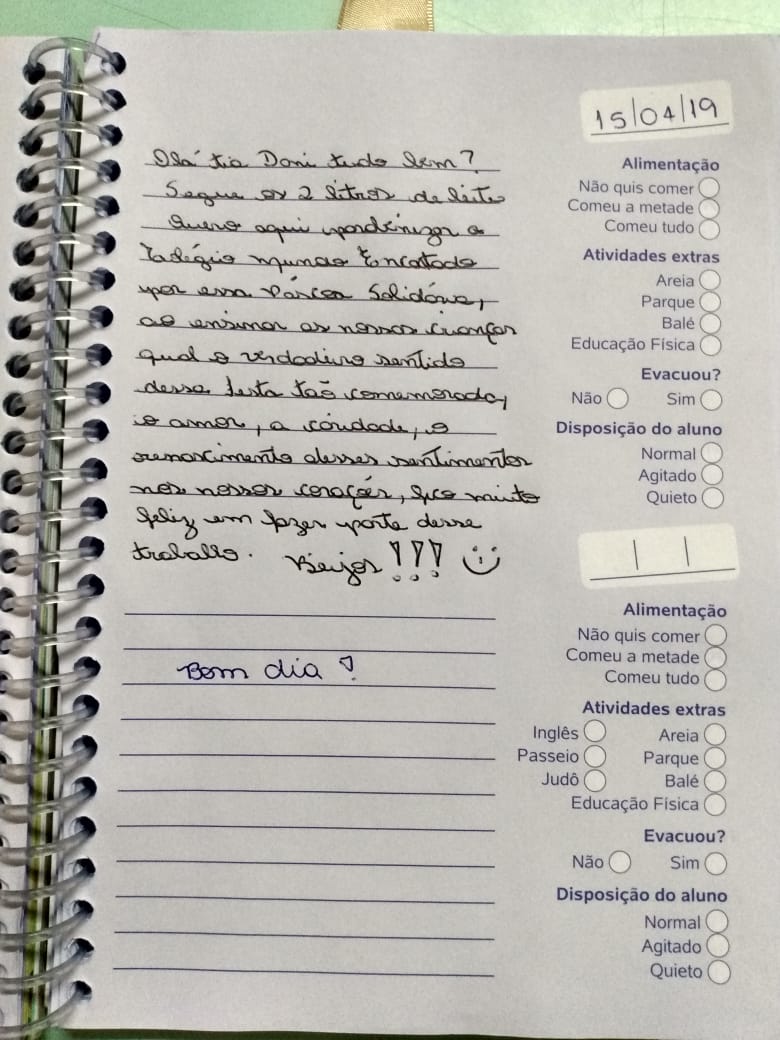 15/04/19
Olá tia Dani tudo bem?
Segue os 2 litros de leite
Quero aqui parabenizar o
Colégio Mundo Encantado
por essa Páscoa Solidária,
ao ensinar as nossas crianças
qual o verdadeiro sentido
dessa festa tão comemorada,
o amor, a caridade, o
renascimento desses sentimentos
nos nossos corações, fico muito
feliz em fazer parte desse
trabalho. Beijos!!!
Bom dia!
Alimentação
Não quis comer
Comeu a metade
Comeu tudo
Atividades extras
Areia
Parque
Balé
Educação Física
Evacuou?
Não Sim
Disposição do aluno
Normal
Agitado
Quieto
/ /
Alimentação
Não quis comer
Comeu a metade
Comeu tudo
Atividades extras
Inglês Areia
Passeio Parque
Judô Balé
Educação Física
Evacuou?
Não Sim
Disposição do aluno
Normal
Agitado
Quieto